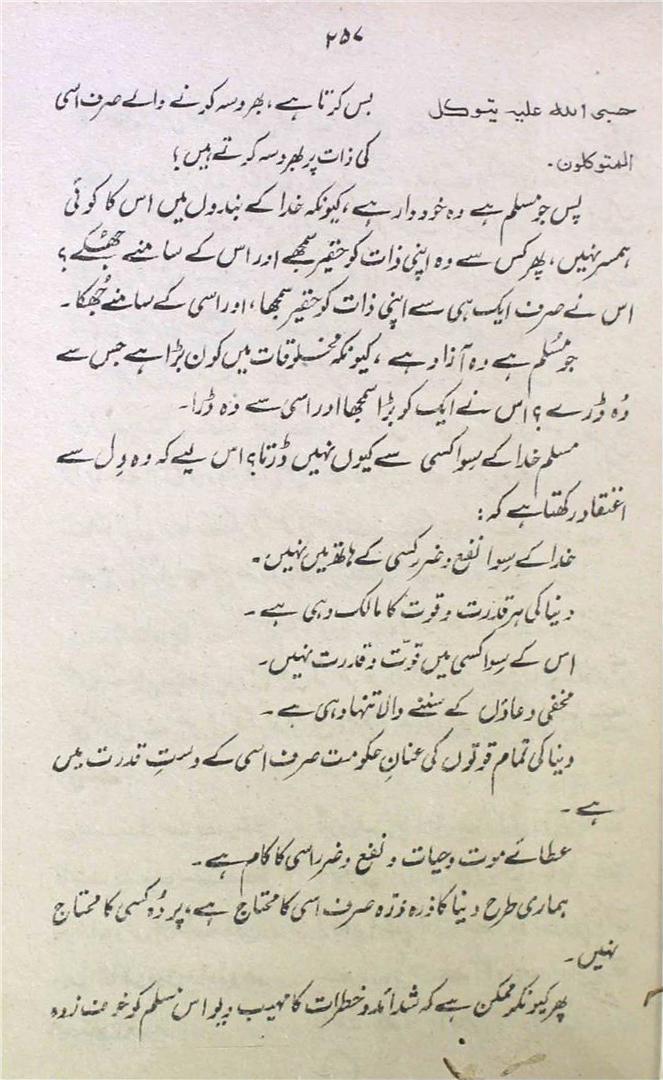 ۲۵۷
حسبی اللہ علیہ یتوکل بس کرتا ہے، بھروسہ کرنے والے صرف اسی
المتوکلون۔ کی ذات پر بھروسہ کرتے ہیں؛
پس جو مسلم ہے وہ خوددار ہے، کیونکہ خدا کے بندوں میں اس کا کوئی
ہمسر نہیں، پھر کس سے وہ اپنی ذات کو حقیر سمجھے اور اس کے سامنے جھکے؟
اس نے صرف ایک ہی سے اپنی ذات کو حقیر سمجھا، اور اسی کے سامنے جُھکا۔
جو مُسلم ہے وہ آزاد ہے، کیونکہ مخلوقات میں کون بڑا ہے جس سے
وُہ ڈرے؟ اس نے ایک کو بڑا سمجھا اور اسی سے وہ ڈرا۔
مسلم خدا کے سِوا کسی سے کیوں نہیں ڈرتا؟ اس لیے کہ وہ دِل سے
اعتقاد رکھتا ہے کہ:
خدا کے سِوا نفع و ضرر کسی کے ہاتھ میں نہیں۔
دنیا کی ہر قدرت و قوت کا مالک وہی ہے۔
اس کے سِوا کسی میں قوّت و قدرت نہیں۔
مخفی دعاؤں کے سننے والا تنہا وہی ہے۔
دنیا کی تمام قوتوں کی عنانِ حکومت صرف اسی کے دستِ قدرت میں
ہے۔
عطائے موت و حیات و نفع و ضرر اسی کا کام ہے۔
ہماری طرح دنیا کا ذرہ ذرّہ صرف اسی کا محتاج ہے، پر وُہ کسی کا محتاج
نہیں۔
پھر کیونکر ممکن ہے کہ شدائد و خطرات کا مہیب دیو اس مُسلم کو خوف زدہ